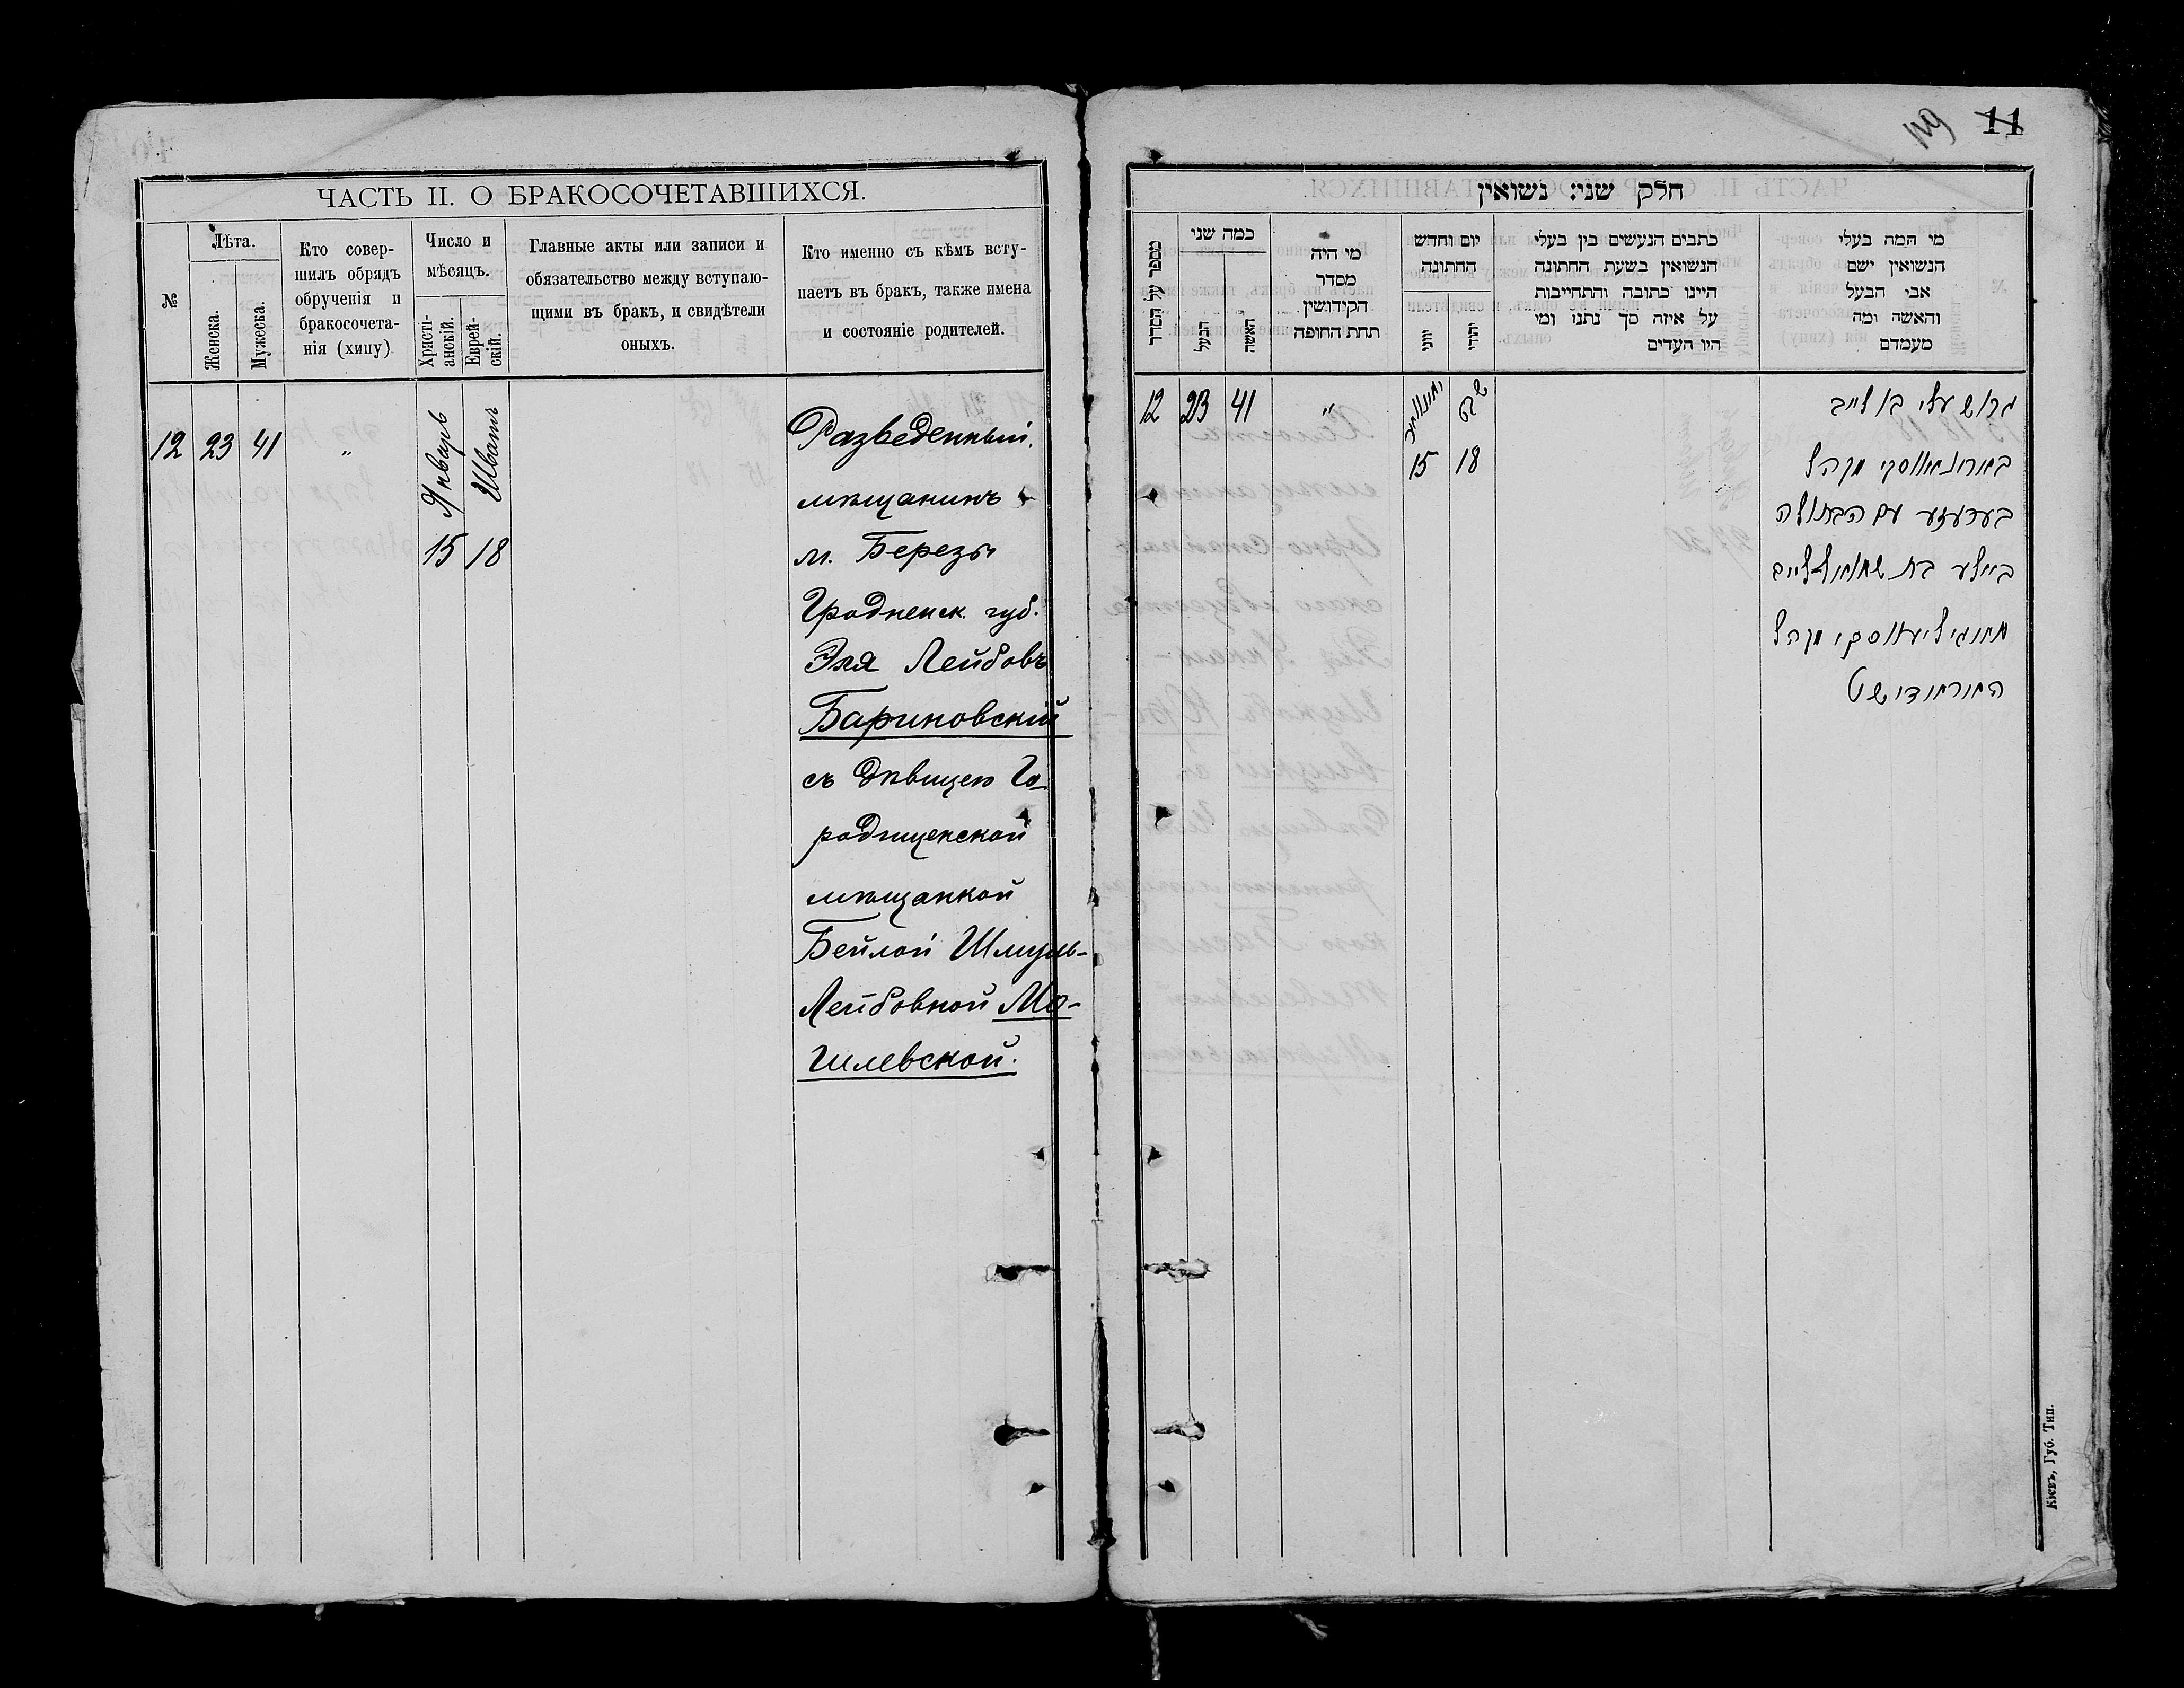 ЧАСТЬ II. О БРАКОСОЧЕТАВШИХСЯ.
№
Лѣта.
Женска.
Мужеска.
Кто совер-
шилъ обрядъ
обрученія и
бракосочета-
нія (хипу)
Число и
мѣсяцъ.
Христі-
анскій.
Еврей-
скій.
Главные акты или записи и
обязательство между вступаю-
щими въ бракъ, и свидѣтели
оныхъ.
Кто именно съ кѣмъ всту-
паетъ въ бракъ, также имена
и состояніе родителей.
12 23 41 "
Январь
15
Шватъ
18
Разведенный
мѣщанинъ
м. Березы
Гродненск. губ.
Эля Лейбовъ
Бариновскій
съ дѣвицею Го-
родищенской
мѣщанкой
Бейлой Шмуль-
Лейбовной Мо-
гилевской.
119 11
חלק שני: נשואין
מספר על הסדר
כמה שני
הבעל
האשה
מי היה
מסדר
הקידושין
תחת החופה
יום וחדש
החתונה
יוני
יהודי
כתבים הנעשים בין בעלי
הנשואין בשעת החתונה
היינו כתובה והתחייבות
על איזה סך נתנו ומי
היו העדים
מי המה בעלי
הנשואין ישם
אבי הבעל
והאשה ומה
מעמדם
12 23 41 "
15
שבט
18
גרוש עלי בן לייב
מקהל
בערעזע עם הבתולה
ביילע בת שמואל לייב
מאגיליעווסקי מקהל
Кіевъ, Губ. Тип.